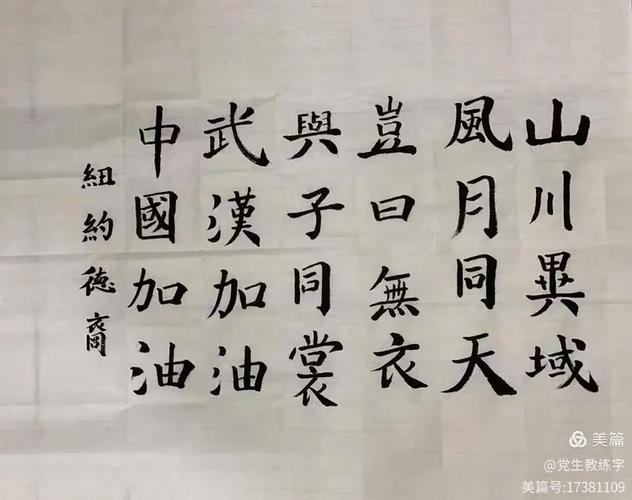 山川異域
風月同天
豈曰無衣
與子同裳
武漢加油
中國加油
紐約德裔
美篇
@党生教练字
美篇号:17381109